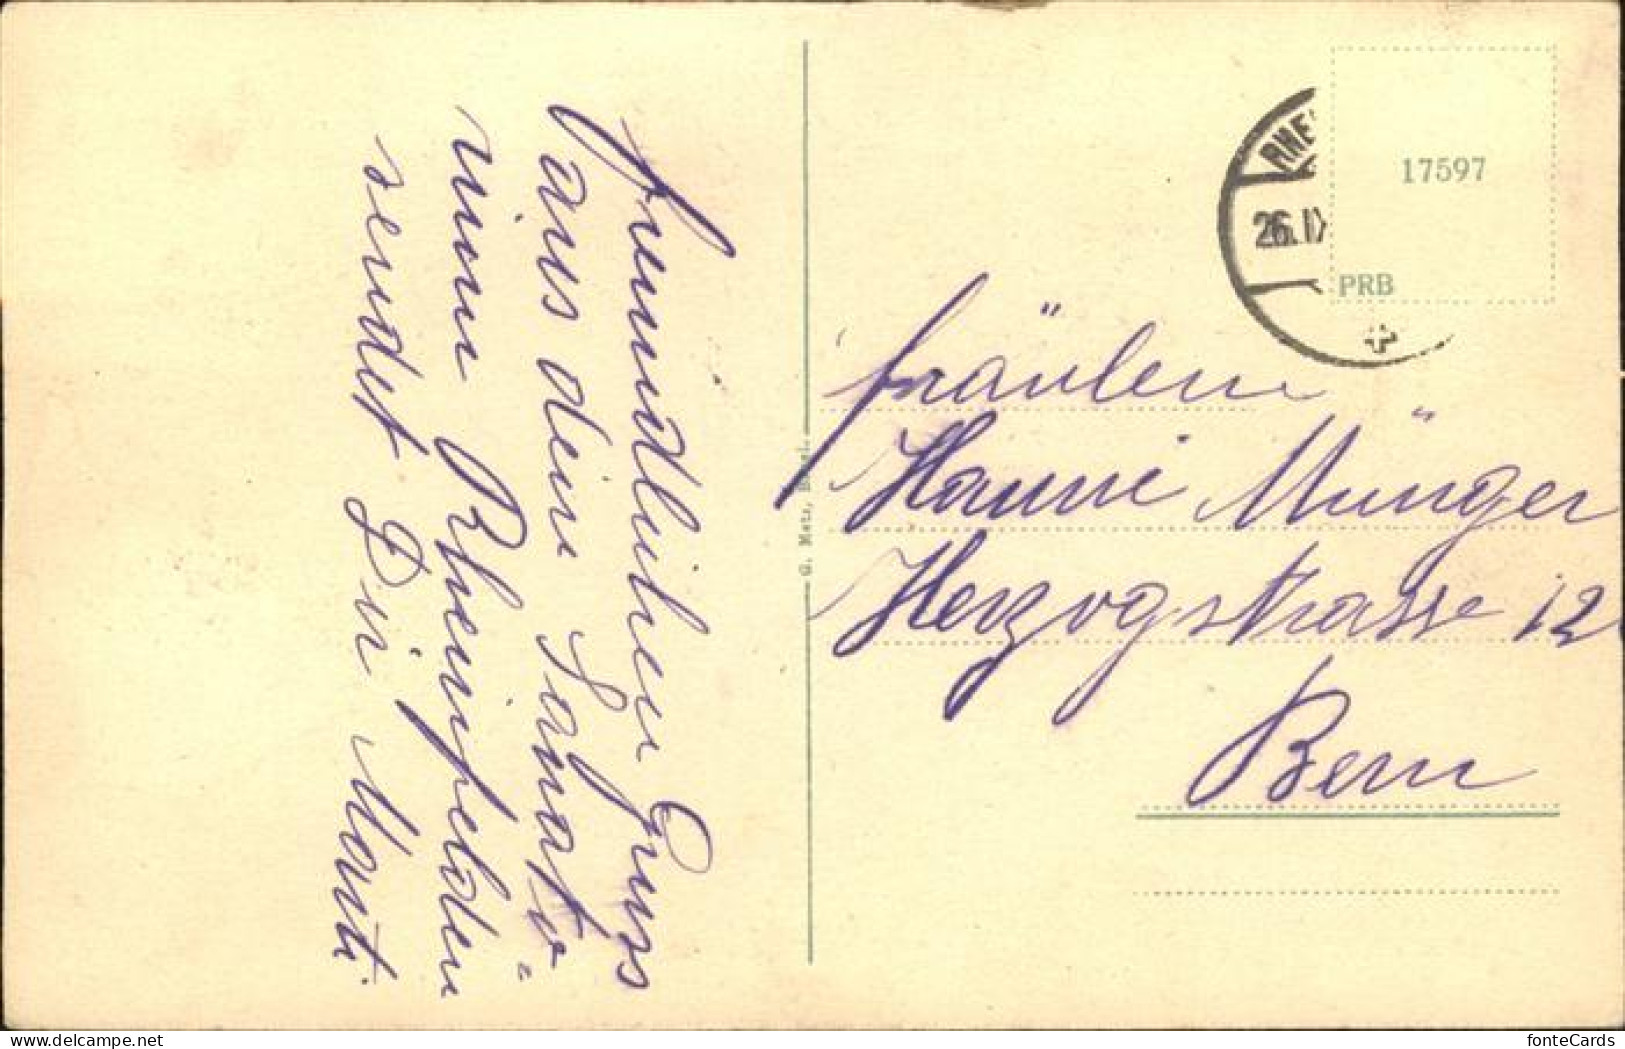 freundlichen Gruss
aus dem Sanato=
rium Rheinfelden
sendet Dir Marti
G. Metz, Basel.
RHE
26. IX
17597
PRB
Fräulein
Hanni Münger
Herzogstrasse 12
Bern
delcampe.net
fonteCards